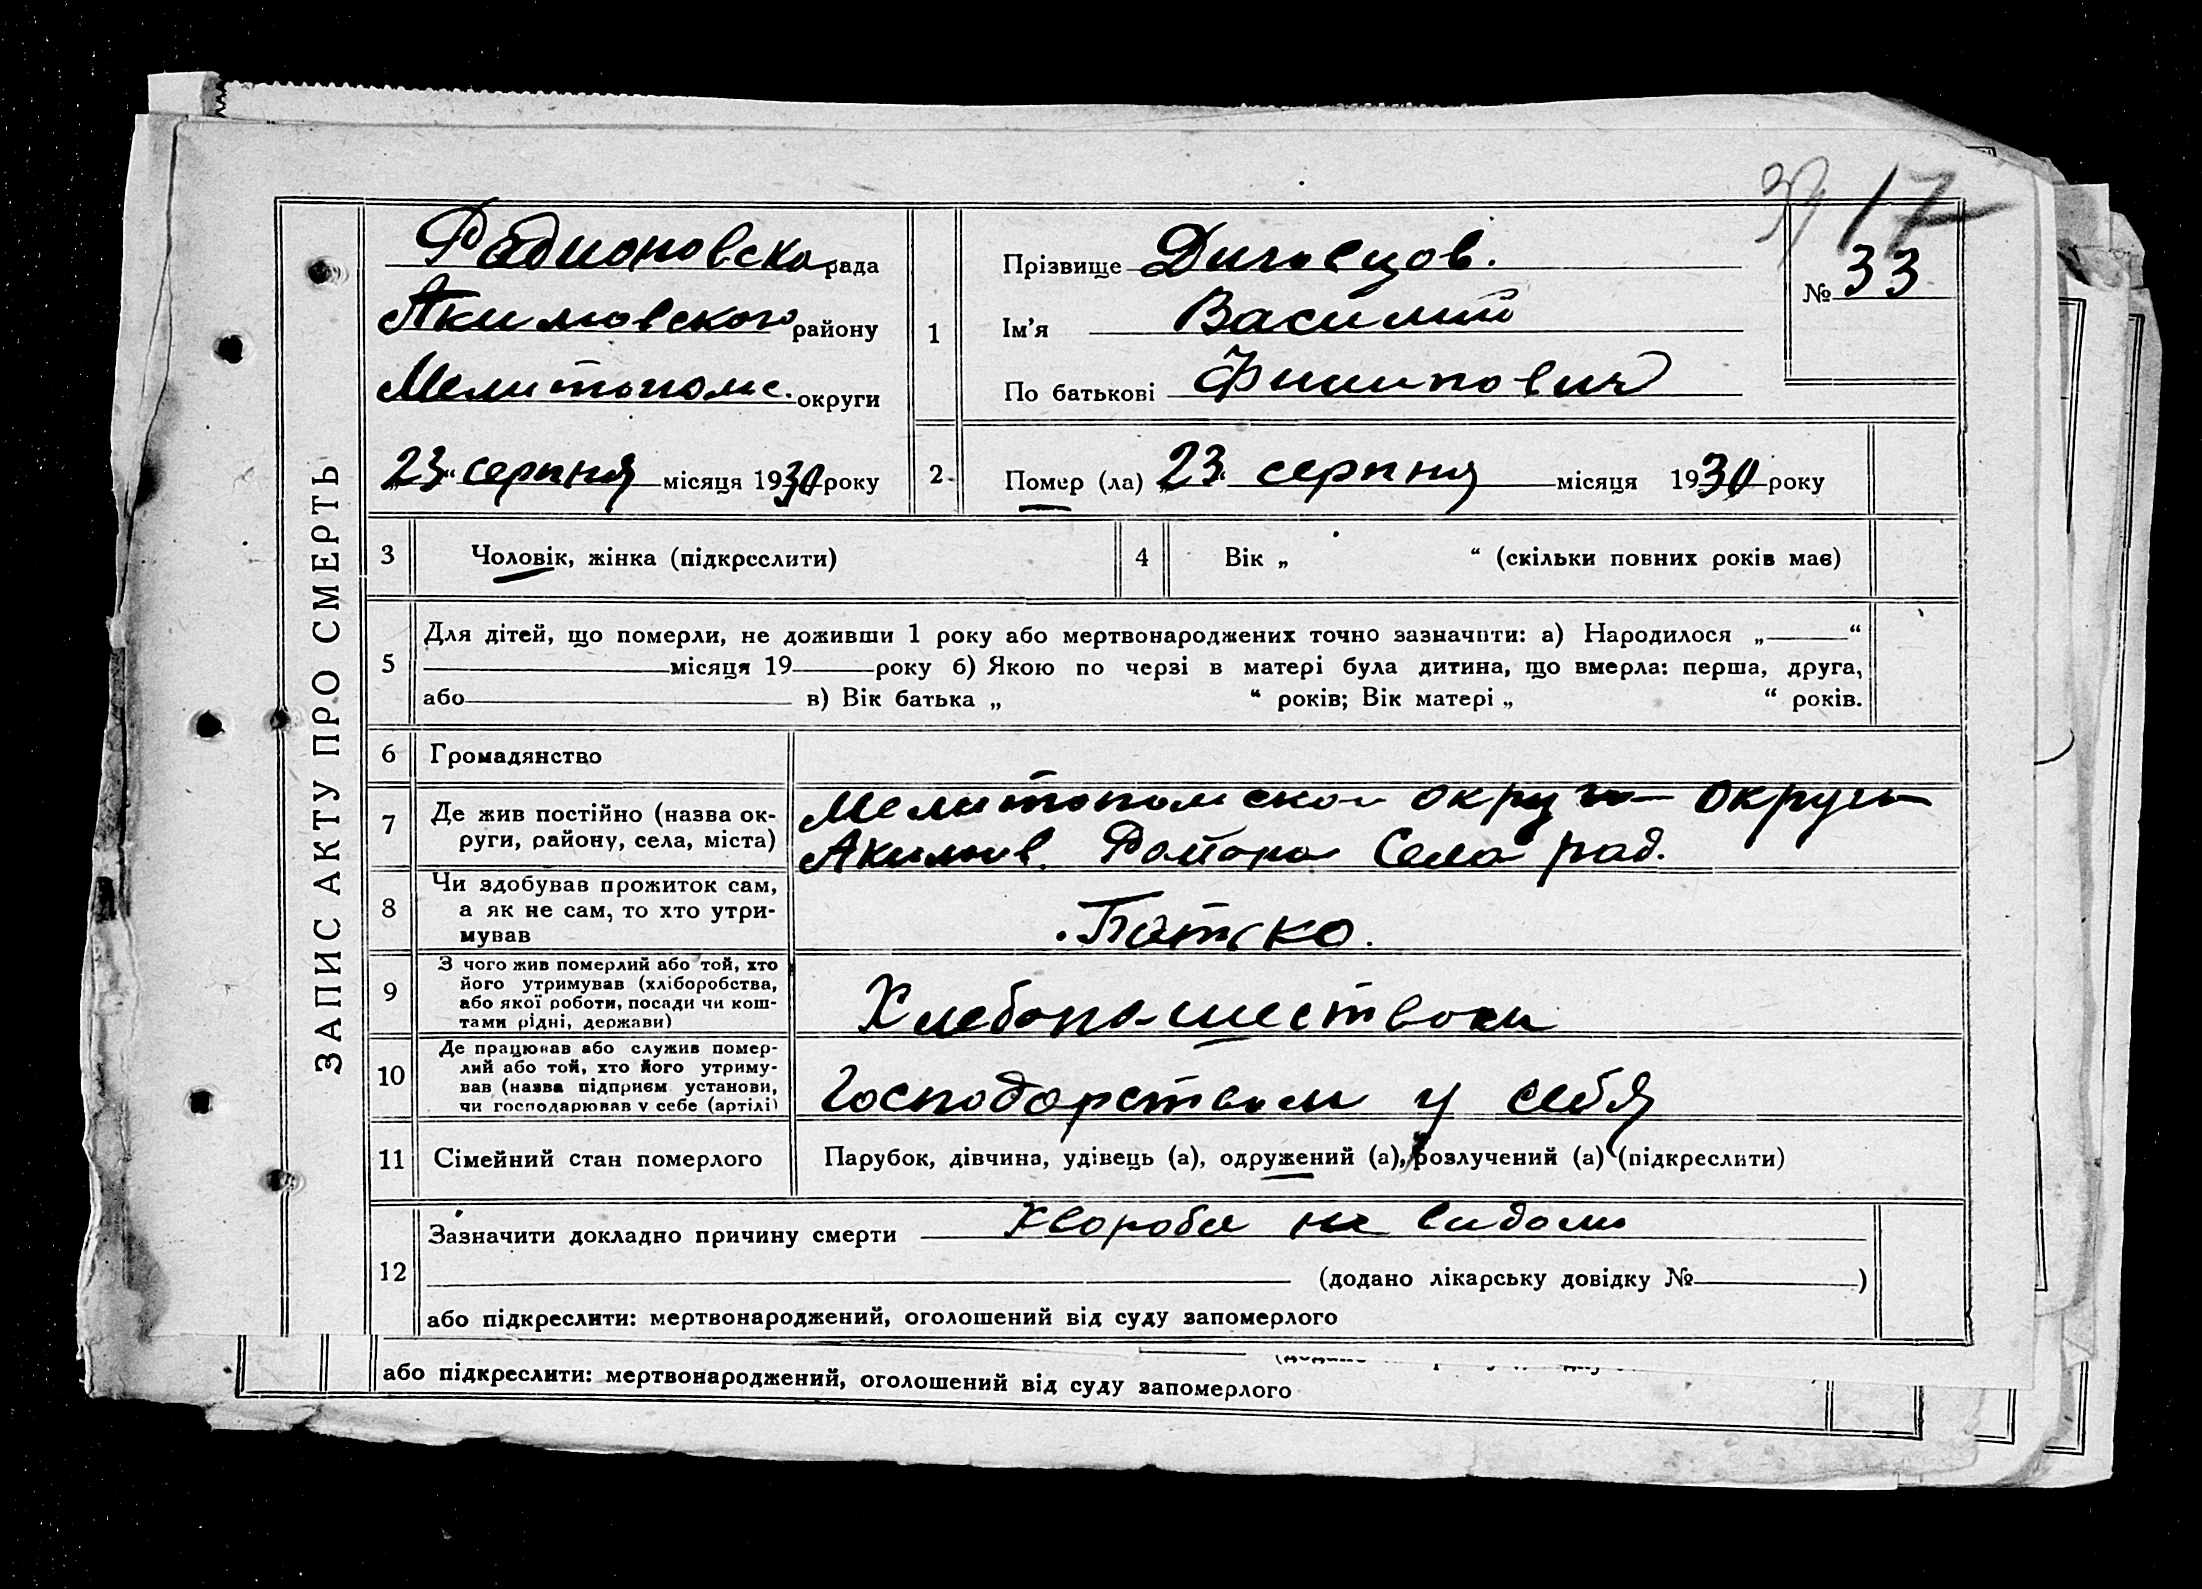 17
ЗАПИС АКТУ ПРО СМЕРТЬ
Радионовска рада
Акимовского району
Мелитопольс. округи
„23“ серпня місяця 1930 року
1
Прізвище Диговцов.
Ім'я Василий
По батькові Филипович
№ 33
2
Помер (ла) „23“ серпня місяця 1930 року
3 Чоловік, жінка (підкреслити)
4 Вік „ “ (скільки повних років має)
5
Для дітей, що померли, не доживши 1 року або мертвонароджених точно зазначити: а) Народилося „ “
місяця 19 року б) Якою по черзі в матері була дитина, що вмерла: перша, друга,
або в) Вік батька „ “ років; Вік матері „ “ років.
6 Громадянство
7 Де жив постійно (назва ок-
руги, району, села, міста)
Мелитопольской округи округи
Акимов. Района Села рад.
8 Чи здобував прожиток сам,
а як не сам, то хто утри-
мував
Батько.
9 З чого жив померлий або той, хто
його утримував (хліборобства,
або якої роботи, посади чи кош-
тами рідні, держави)
Хлебопашеством
10 Де працював або служив помер-
лий або той, хто його утриму-
вав (назва підприєм установи,
чи господарював у себе (артілі)
Господарством у себя
11 Сімейний стан померлого
Парубок, дівчина, удівець (а), одружений (а), розлучений (а) (підкреслити)
12
Зазначити докладно причину смерти Хвороба не видома
(додано лікарську довідку № )
або підкреслити: мертвонароджений, оголошений від суду запомерлого
або підкреслити: мертвонароджений, оголошений від суду запомерлого